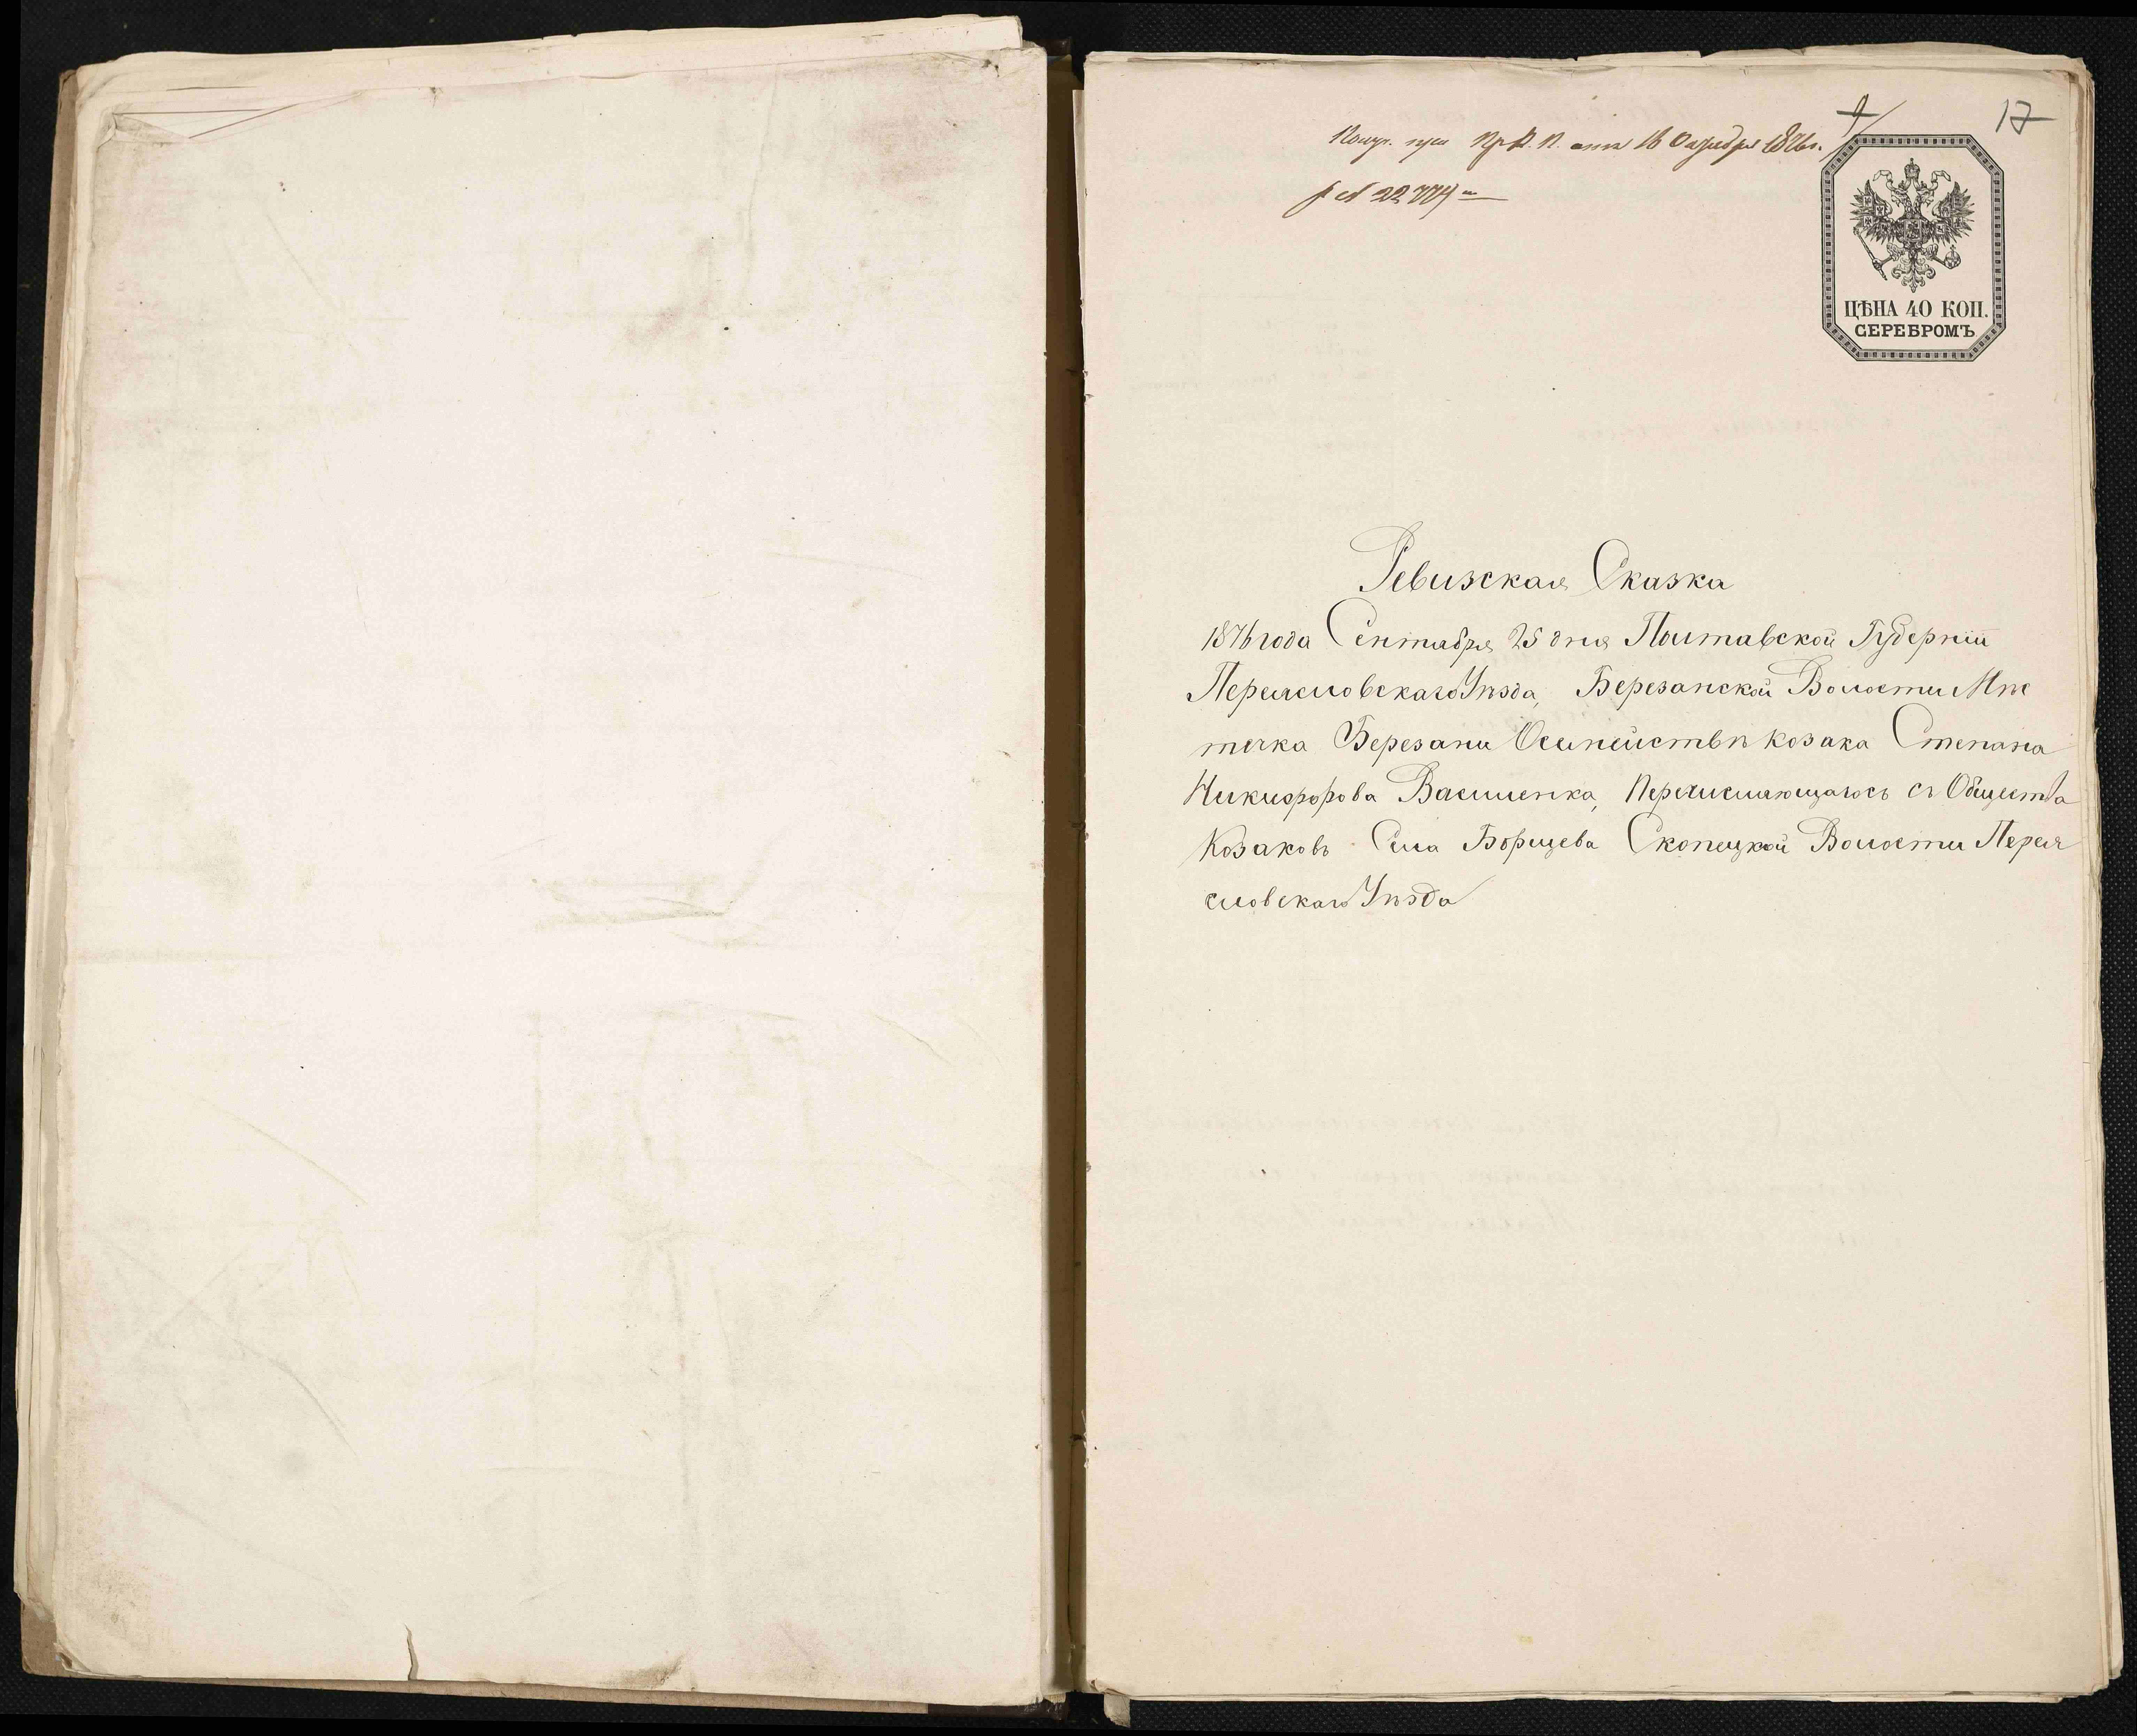 17
Получ. при Пр. К. П. отъ 16 Октября 1876 г.
за № 22774
ЦѢНА 40 КОП.
СЕРЕБРОМЪ
Ревизская Сказка
1876 года Сентября 25 дня Полтавской Губерніи
Переясловскаго Уѣзда, Березанской Волости Мѣс
течка Березани О семействѣ козака Степана
Никифорова Василенка, Перечисляющагось съ Общества
Козаковъ Села Борщева Скопецкой Волости Перея
словскаго Уѣзда